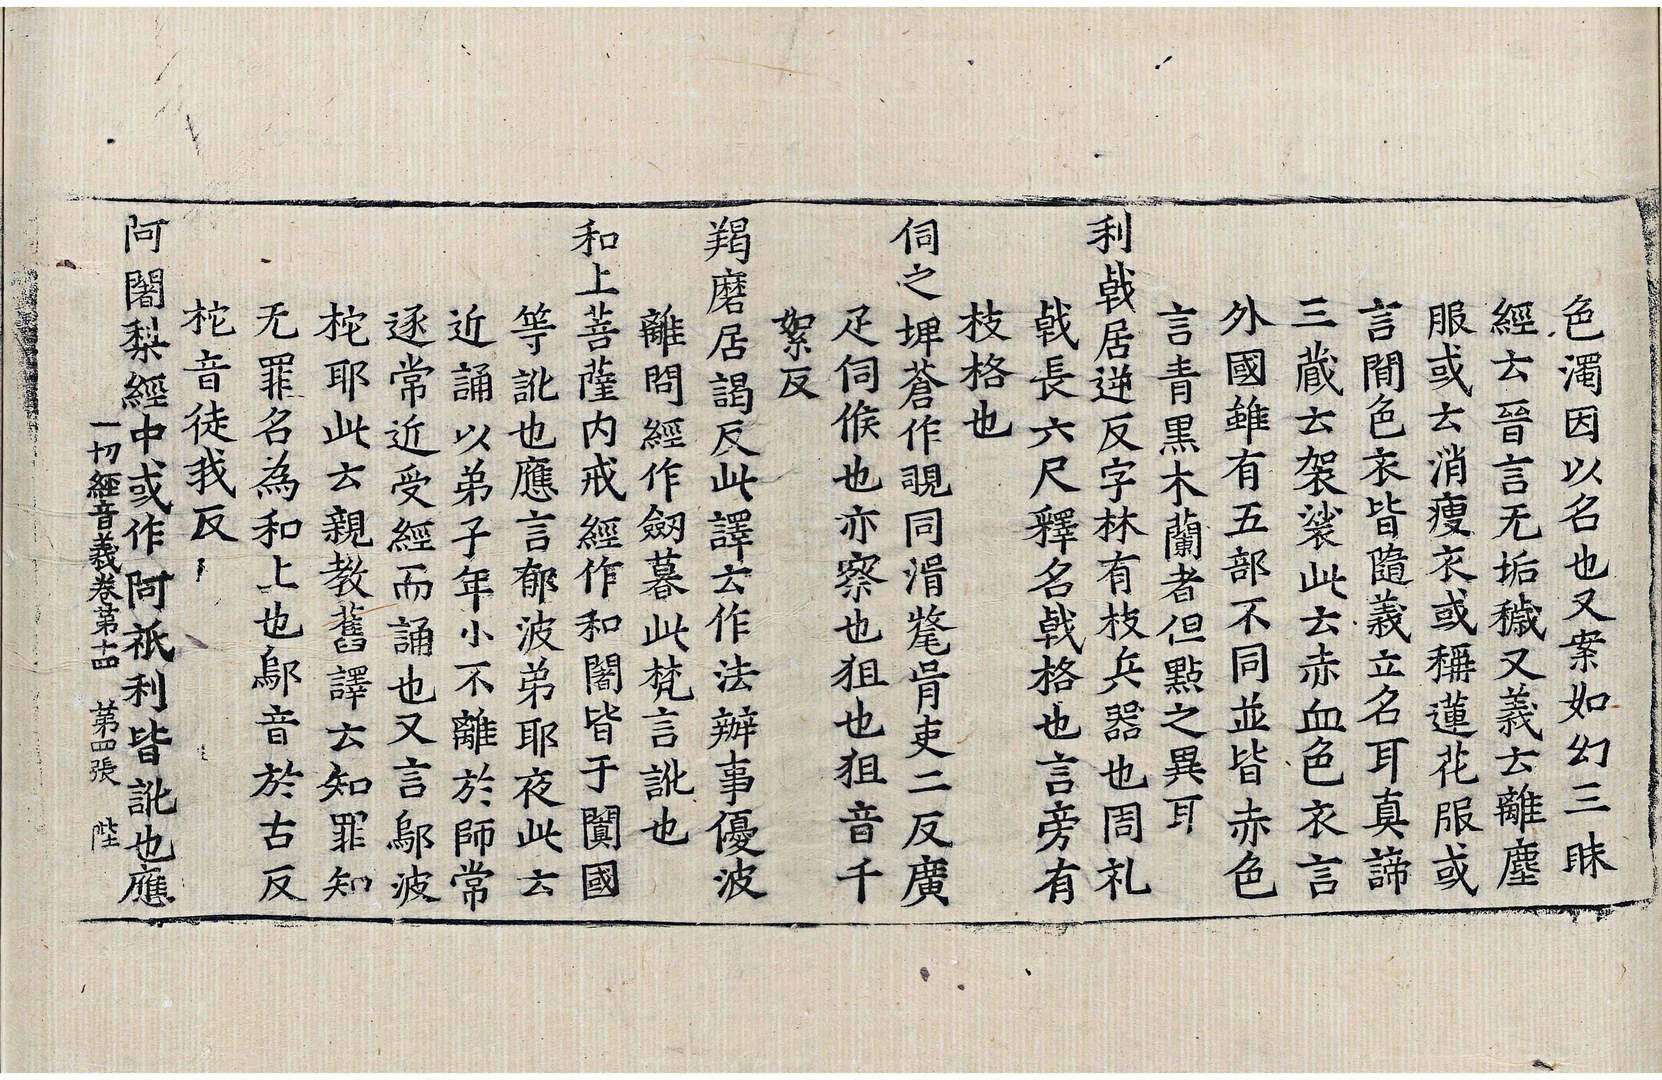 色濁因以名也又案如幻三昧
經云晉言无垢穢又義云離塵
服或云消瘦衣或稱蓮花服或
言閒色衣皆隨義立名耳真諦
三蔵云袈裟此云赤血色衣言
外國雖有五部不同並皆赤色
言青黒木蘭者但點之異耳
利戟居逆反字林有枝兵器也周礼
戟長六尺釋名戟格也言旁有
枝格也
伺之埤蒼作覗同湑氂胥吏二反廣
疋伺候也亦察也狙也狙音千
絮反
羯磨居謁反此譯云作法辦事優波
離問經作劒暮此梵言訛也
和上菩薩内戒經作和闍皆于闐國
等訛也應言郁波弟耶夜此云
近誦以弟子年小不離於師常
逐常近受經而誦也又言鄔波
柁耶此云親教舊譯云知罪知
无罪名為和上也鄔音於古反
柁音徒我反
阿闍梨經中或作阿祇利皆訛也應
一切經音義卷第十四 第四張 陛